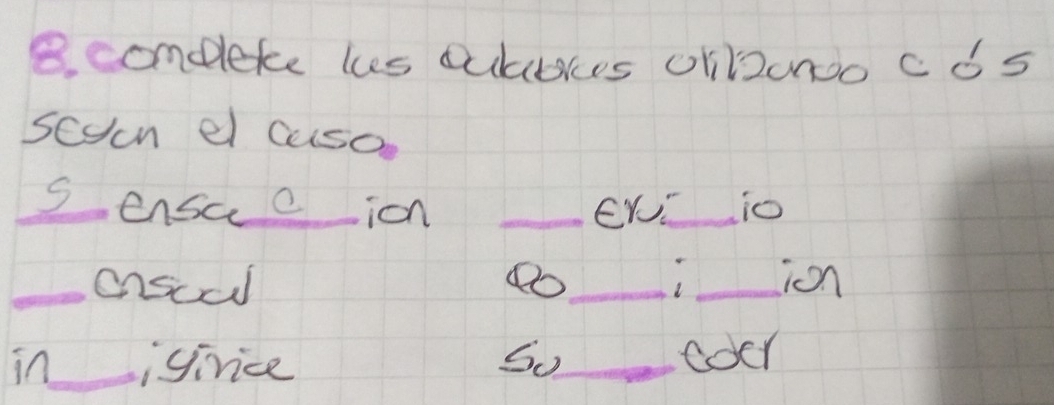 8. complete las palabras utilizando c ó s
según el caso.
s ensa c ion ___ ervi ___ io
___ ensual po ___ i ___ ion
in ___ iginice su ___ eder